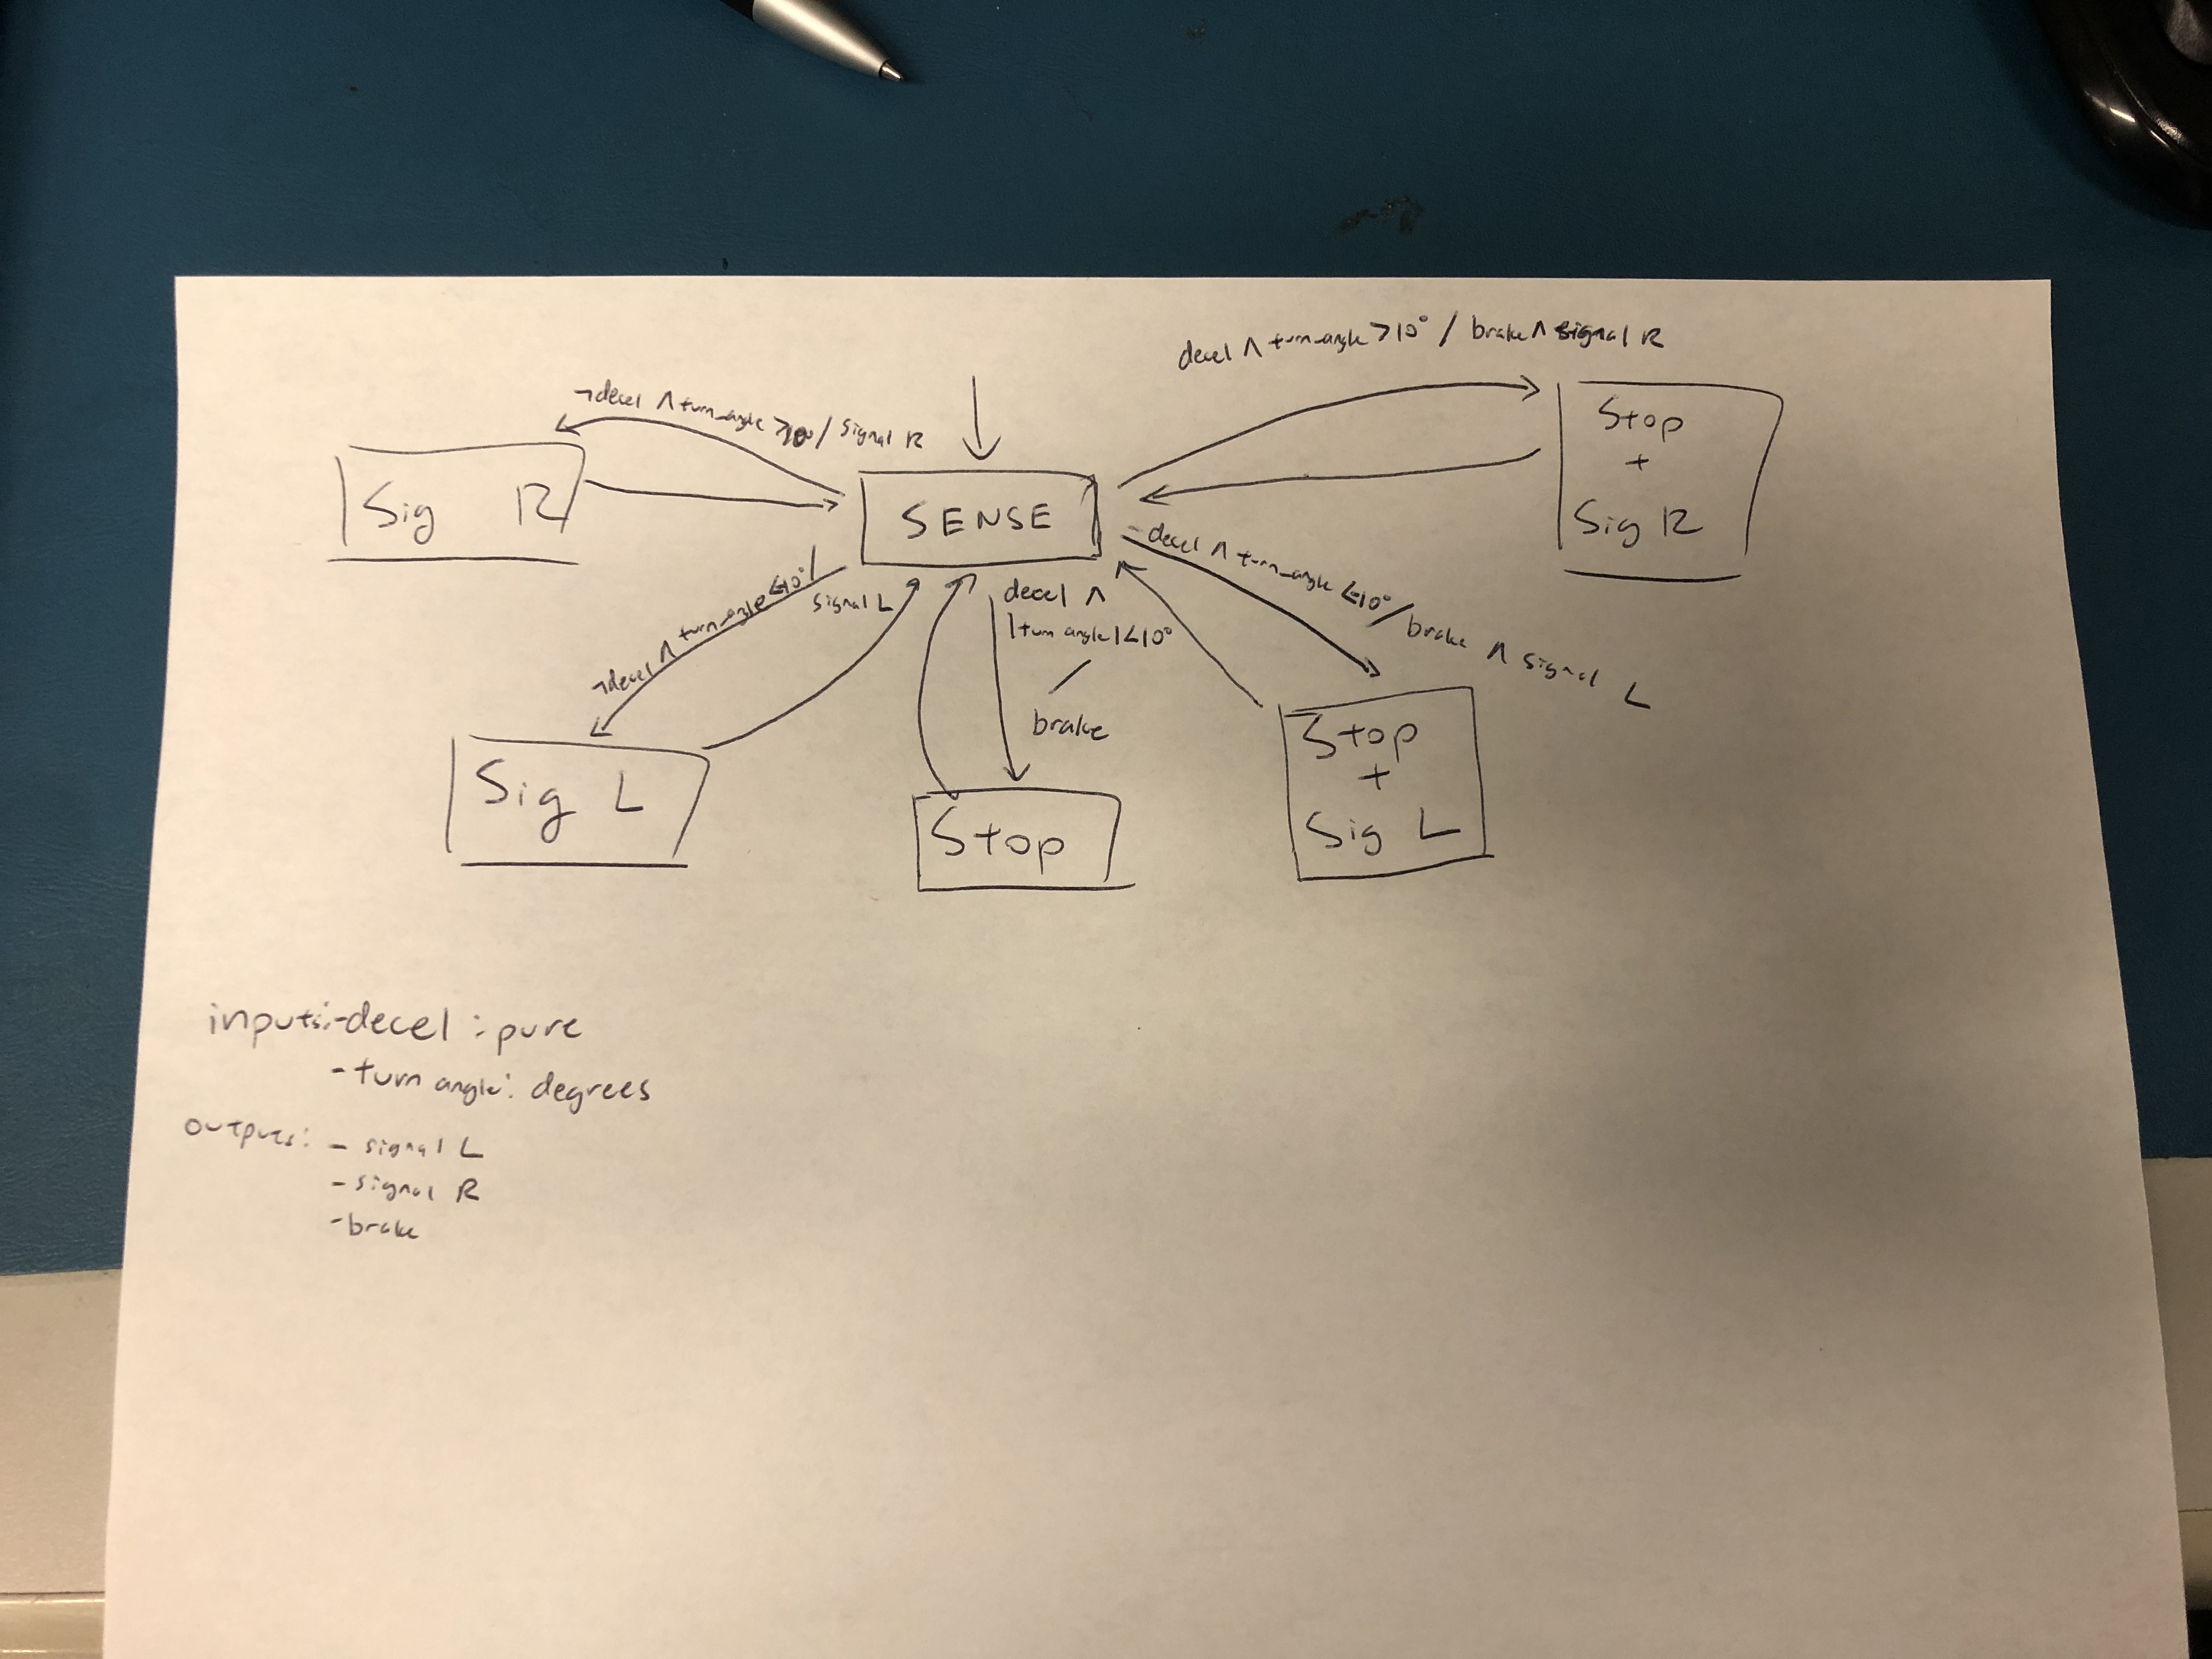 decel ∧ turn_angle >10° / brake ∧ signal R
¬decel ∧ turn_angle >10° / signal R
Stop
+
Sig R
Sig R
SENSE
decel ∧ turn_angle <-10° / brake ∧ signal L
¬decel ∧ turn_angle <-10° /
signal L
decel ∧
|turn angle| <10°
/
brake
Sig L
Stop
Stop
+
Sig L
inputs: -decel : pure
- turn angle: degrees
outputs: - signal L
- signal R
- brake